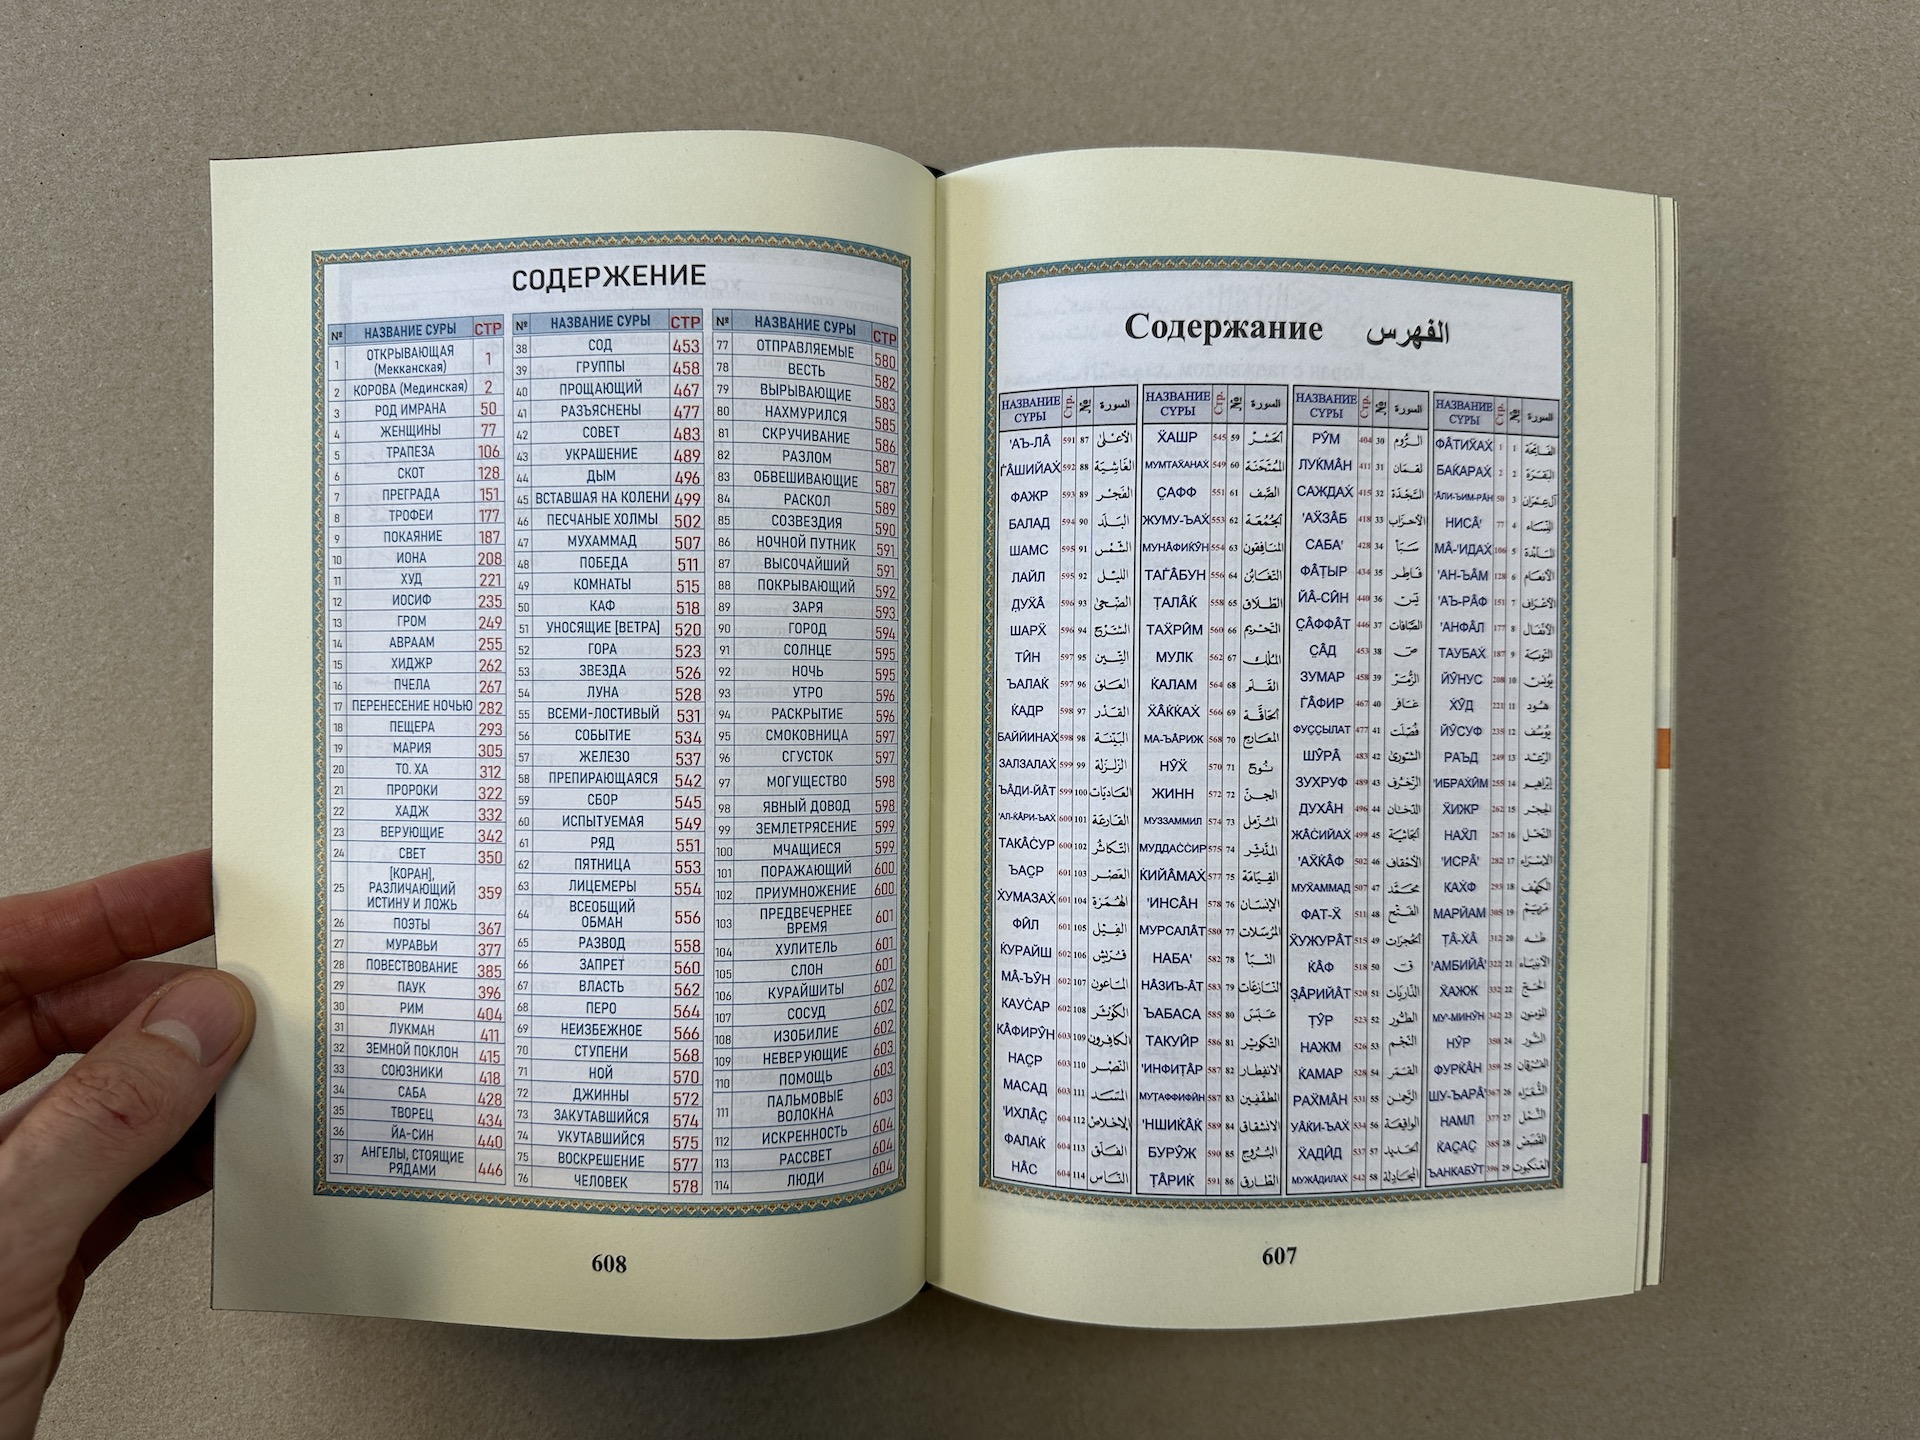 СОДЕРЖЕНИЕ
№ НАЗВАНИЕ СУРЫ СТР
1 ОТКРЫВАЮЩАЯ (Мекканская) 1
2 КОРОВА (Мединская) 2
3 РОД ИМРАНА 50
4 ЖЕНЩИНЫ 77
5 ТРАПЕЗА 106
6 СКОТ 128
7 ПРЕГРАДА 151
8 ТРОФЕИ 177
9 ПОКАЯНИЕ 187
10 ИОНА 208
11 ХУД 221
12 ИОСИФ 235
13 ГРОМ 249
14 АВРААМ 255
15 ХИДЖР 262
16 ПЧЕЛА 267
17 ПЕРЕНЕСЕНИЕ НОЧЬЮ 282
18 ПЕЩЕРА 293
19 МАРИЯ 305
20 ТО. ХА 312
21 ПРОРОКИ 322
22 ХАДЖ 332
23 ВЕРУЮЩИЕ 342
24 СВЕТ 350
25 [КОРАН], РАЗЛИЧАЮЩИЙ ИСТИНУ И ЛОЖЬ 359
26 ПОЭТЫ 367
27 МУРАВЬИ 377
28 ПОВЕСТВОВАНИЕ 385
29 ПАУК 396
30 РИМ 404
31 ЛУКМАН 411
32 ЗЕМНОЙ ПОКЛОН 415
33 СОЮЗНИКИ 418
34 САБА 428
35 ТВОРЕЦ 434
36 ЙА-СИН 440
37 АНГЕЛЫ, СТОЯЩИЕ РЯДАМИ 446
№ НАЗВАНИЕ СУРЫ СТР
38 СОД 453
39 ГРУППЫ 458
40 ПРОЩАЮЩИЙ 467
41 РАЗЪЯСНЕНЫ 477
42 СОВЕТ 483
43 УКРАШЕНИЕ 489
44 ДЫМ 496
45 ВСТАВШАЯ НА КОЛЕНИ 499
46 ПЕСЧАНЫЕ ХОЛМЫ 502
47 МУХАММАД 507
48 ПОБЕДА 511
49 КОМНАТЫ 515
50 КАФ 518
51 УНОСЯЩИЕ [ВЕТРА] 520
52 ГОРА 523
53 ЗВЕЗДА 526
54 ЛУНА 528
55 ВСЕМИ-ЛОСТИВЫЙ 531
56 СОБЫТИЕ 534
57 ЖЕЛЕЗО 537
58 ПРЕПИРАЮЩАЯСЯ 542
59 СБОР 545
60 ИСПЫТУЕМАЯ 549
61 РЯД 551
62 ПЯТНИЦА 553
63 ЛИЦЕМЕРЫ 554
64 ВСЕОБЩИЙ ОБМАН 556
65 РАЗВОД 558
66 ЗАПРЕТ 560
67 ВЛАСТЬ 562
68 ПЕРО 564
69 НЕИЗБЕЖНОЕ 566
70 СТУПЕНИ 568
71 НОЙ 570
72 ДЖИННЫ 572
73 ЗАКУТАВШИЙСЯ 574
74 УКУТАВШИЙСЯ 575
75 ВОСКРЕШЕНИЕ 577
76 ЧЕЛОВЕК 578
№ НАЗВАНИЕ СУРЫ СТР
77 ОТПРАВЛЯЕМЫЕ 580
78 ВЕСТЬ 582
79 ВЫРЫВАЮЩИЕ 583
80 НАХМУРИЛСЯ 585
81 СКРУЧИВАНИЕ 586
82 РАЗЛОМ 587
83 ОБВЕШИВАЮЩИЕ 587
84 РАСКОЛ 589
85 СОЗВЕЗДИЯ 590
86 НОЧНОЙ ПУТНИК 591
87 ВЫСОЧАЙШИЙ 591
88 ПОКРЫВАЮЩИЙ 592
89 ЗАРЯ 593
90 ГОРОД 594
91 СОЛНЦЕ 595
92 НОЧЬ 595
93 УТРО 596
94 РАСКРЫТИЕ 596
95 СМОКОВНИЦА 597
96 СГУСТОК 597
97 МОГУЩЕСТВО 598
98 ЯВНЫЙ ДОВОД 598
99 ЗЕМЛЕТРЯСЕНИЕ 599
100 МЧАЩИЕСЯ 599
101 ПОРАЖАЮЩИЙ 600
102 ПРИУМНОЖЕНИЕ 600
103 ПРЕДВЕЧЕРНЕЕ ВРЕМЯ 601
104 ХУЛИТЕЛЬ 601
105 СЛОН 601
106 КУРАЙШИТЫ 602
107 СОСУД 602
108 ИЗОБИЛИЕ 602
109 НЕВЕРУЮЩИЕ 603
110 ПОМОЩЬ 603
111 ПАЛЬМОВЫЕ ВОЛОКНА 603
112 ИСКРЕННОСТЬ 604
113 РАССВЕТ 604
114 ЛЮДИ 604
608
Содержание الفهرس
НАЗВАНИЕ СУРЫ Стр. № السورة
'АЪ-ЛÂ 591 87 الأعلى
ЃÂШИЙАХ̇ 592 88 الغاشية
ФАЖР 593 89 الفجر
БАЛАД 594 90 البلد
ШАМС 595 91 الشمس
ЛАЙЛ 595 92 الليل
Д̣УХ̈Â 596 93 الضحى
ШАРХ̈ 596 94 الشرح
ТЙ̂Н 597 95 التين
ЪАЛАЌ 597 96 العلق
ЌАДР 598 97 القدر
БАЙЙИНАХ̇ 598 98 البينة
ЗАЛЗАЛАХ̇ 599 99 الزلزلة
ЪÂДИ-ЙÂТ 599 100 العاديات
'АЛ-ЌÂРИ-ЪАХ̇ 600 101 القارعة
ТАКÂС̇УР 600 102 التكاثر
ЪАС̣Р 601 103 العصر
Х̇УМАЗАХ̇ 601 104 الهمزة
ФЙ̂Л 601 105 الفيل
ЌУРАЙШ 602 106 قريش
МÂ-ЪӮН 602 107 الماعون
КАУС̇АР 602 108 الكوثر
КÂФИРӮН 603 109 الكافرون
НАС̣Р 603 110 النصر
МАСАД 603 111 المسد
'ИХЛÂС̣ 604 112 الإخلاص
ФАЛАЌ 604 113 الفلق
НÂС 604 114 الناس
НАЗВАНИЕ СУРЫ Стр. № السورة
Х̈АШР 545 59 الحشر
МУМТАХ̈АНАХ̇ 549 60 الممتحنة
С̣АФФ 551 61 الصف
ЖУМУ-ЪАХ̇ 553 62 الجمعة
МУНÂФИЌӮН 554 63 المنافقون
ТАЃÂБУН 556 64 التغابن
Т̣АЛÂЌ 558 65 الطلاق
ТАХ̈РЙ̂М 560 66 التحريم
МУЛК 562 67 الملك
ЌАЛАМ 564 68 القلم
Х̈ÂЌЌАХ̇ 566 69 الحاقة
МА-ЪÂРИЖ 568 70 المعارج
НӮХ̈ 570 71 نوح
ЖИНН 572 72 الجن
МУЗЗАММИЛ 574 73 المزمل
МУДДАС̇С̇ИР 575 74 المدثر
ЌИЙÂМАХ̇ 577 75 القيامة
'ИНСÂН 578 76 الإنسان
МУРСАЛÂТ 580 77 المرسلات
НАБА' 582 78 النبأ
НÂЗИЪ-ÂТ 583 79 النازعات
ЪАБАСА 585 80 عبس
ТАКУЙ̂Р 586 81 التكوير
'ИНФИТ̣ÂР 587 82 الانفطار
МУТ̣АФФИФЙ̂Н 587 83 المطففين
'НШИЌÂЌ 589 84 الانشقاق
БУРӮЖ 590 85 البروج
Т̣ÂРИЌ 591 86 الطارق
НАЗВАНИЕ СУРЫ Стр. № السورة
РӮМ 404 30 الروم
ЛУЌМÂН 411 31 لقمان
САЖДАХ̇ 415 32 السجدة
'АХ̈ЗÂБ 418 33 الأحزاب
САБА' 428 34 سبأ
ФÂТ̣ЫР 434 35 فاطر
ЙÂ-СЙ̂Н 440 36 يس
С̣ÂФФÂТ 446 37 الصافات
С̣ÂД 453 38 ص
ЗУМАР 458 39 الزمر
ЃÂФИР 467 40 غافر
ФУС̣С̣ЫЛАТ 477 41 فصلت
ШӮРÂ 483 42 الشورى
ЗУХРУФ 489 43 الزخرف
ДУХÂН 496 44 الدخان
ЖÂС̇ИЙАХ̇ 499 45 الجاثية
'АХ̈ЌÂФ 502 46 الأحقاف
МУХ̈АММАД 507 47 محمد
ФАТ-Х̈ 511 48 الفتح
Х̈УЖУРÂТ 515 49 الحجرات
ЌÂФ 518 50 ق
З̣ÂРИЙÂТ 520 51 الذاريات
Т̣ӮР 523 52 الطور
НАЖМ 526 53 النجم
ЌАМАР 528 54 القمر
РАХ̈МÂН 531 55 الرحمن
УÂЌИ-ЪАХ̇ 534 56 الواقعة
Х̈АДЙ̂Д 537 57 الحديد
МУЖÂДИЛАХ̇ 542 58 المجادلة
НАЗВАНИЕ СУРЫ Стр. № السورة
ФÂТИХ̈АХ̇ 1 1 الفاتحة
БАЌАРАХ̇ 2 2 البقرة
'ÂЛИ-ЪИМ-РÂН 50 3 آل عمران
НИСÂ' 77 4 النساء
МÂ-'ИДАХ̇ 106 5 المائدة
'АН-ЪÂМ 128 6 الأنعام
'АЪ-РÂФ 151 7 الأعراف
'АНФÂЛ 177 8 الأنفال
ТАУБАХ̇ 187 9 التوبة
ЙӮНУС 208 10 يونس
Х̇ӮД 221 11 هود
ЙӮСУФ 235 12 يوسف
РАЪД 249 13 الرعد
'ИБРАХ̇Й̂М 255 14 إبراهيم
Х̈ИЖР 262 15 الحجر
НАХ̈Л 267 16 النحل
'ИСРÂ' 282 17 الإسراء
КАХ̇Ф 293 18 الكهف
МАРЙАМ 305 19 مريم
Т̣Â-Х̇Â 312 20 طه
'АМБИЙÂ' 322 21 الأنبياء
Х̈АЖЖ 332 22 الحج
МУ'-МИНӮН 342 23 المؤمنون
НӮР 350 24 النور
ФУРЌÂН 359 25 الفرقان
ШУ-ЪАРÂ' 367 26 الشعراء
НАМЛ 377 27 النمل
ЌАС̣АС̣ 385 28 القصص
ЪАНКАБӮТ 396 29 العنكبوت
607